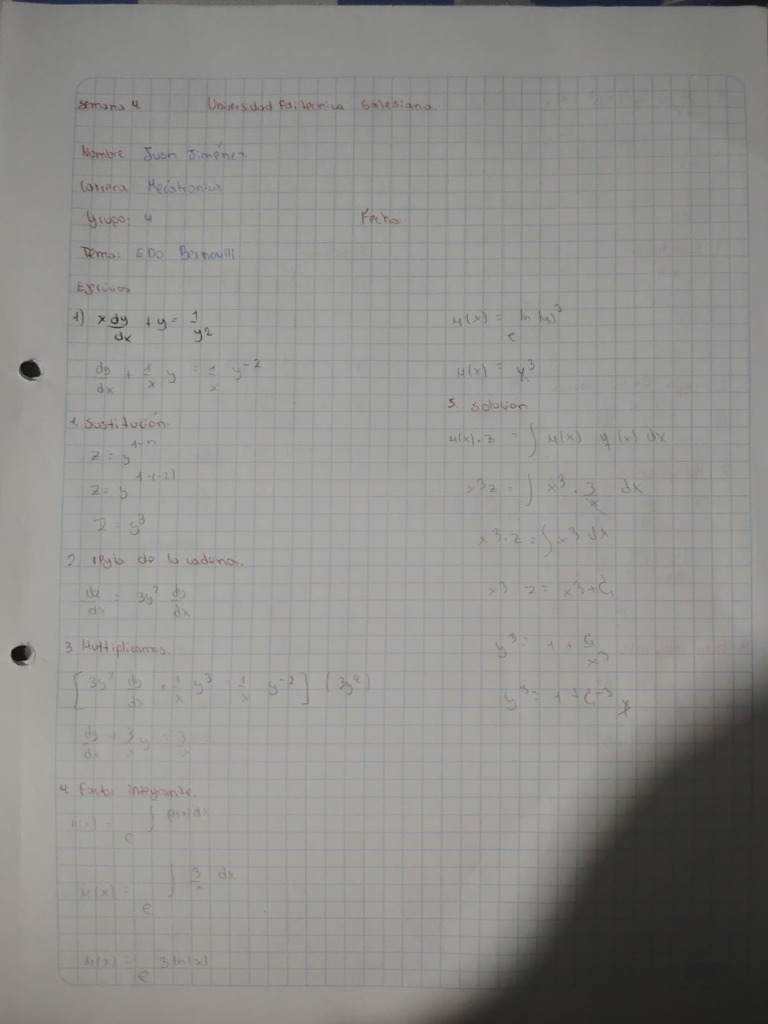 Semana 4. Universidad Politecnica Salesiana.
Nombre Juan Jiménez
Carrera Mecatronica
Grupo: 4 Fecha:
Tema: EDO Bernoulli
Ejercicios
1) x dy/dx + y = 1/y2
dy/dx + 1/x y = 1/x y^-2
1. Sustitución.
z = y^1-n
z = y^1-(-2)
z = y^3
2. Regla de la cadena.
dz/dx = 3y^2 dy/dx
3. Multiplicamos.
[3y^2 dy/dx + 1/x y^3 = 1/x y^-2] (3y^2)
dy/dx + 3/x y = 3/x
4. Factor integrante.
u(x) = e^∫ p(x)dx
u(x) = e^∫ 3/x dx
u(x) = e^3 ln|x|
u(x) = e^ln|x|^3
u(x) = x^3
5. Solucion
u(x).z = ∫ u(x) q(x) dx
x^3z = ∫ x^3 . 3/x dx
x^3.z = ∫ x^3 dx
x^3.z = x^3+C1
y^3 = 1 + C1/x^3